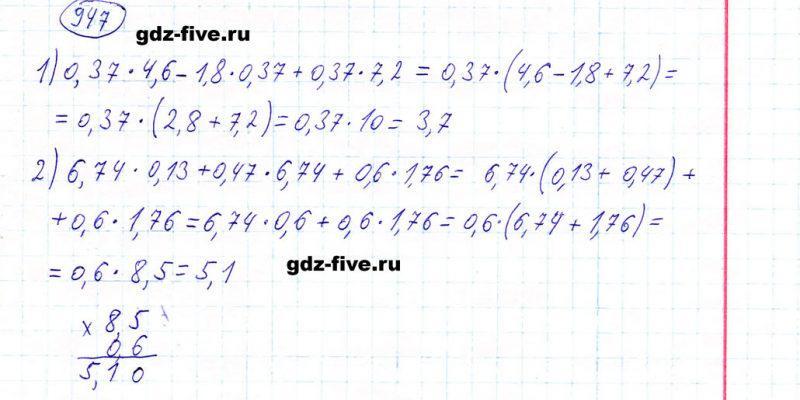 947
gdz-five.ru
1) 0,37·4,6-1,8·0,37+0,37·7,2 = 0,37·(4,6-1,8+7,2)=
= 0,37·(2,8+7,2)=0,37·10= 3,7
2) 6,74·0,13+0,47·6,74+0,6·1,76= 6,74·(0,13+0,47)+
+0,6·1,76=6,74·0,6+0,6·1,76=0,6·(6,74+1,76)=
=0,6·8,5=5,1
gdz-five.ru
x 8,5
0,6
5,10